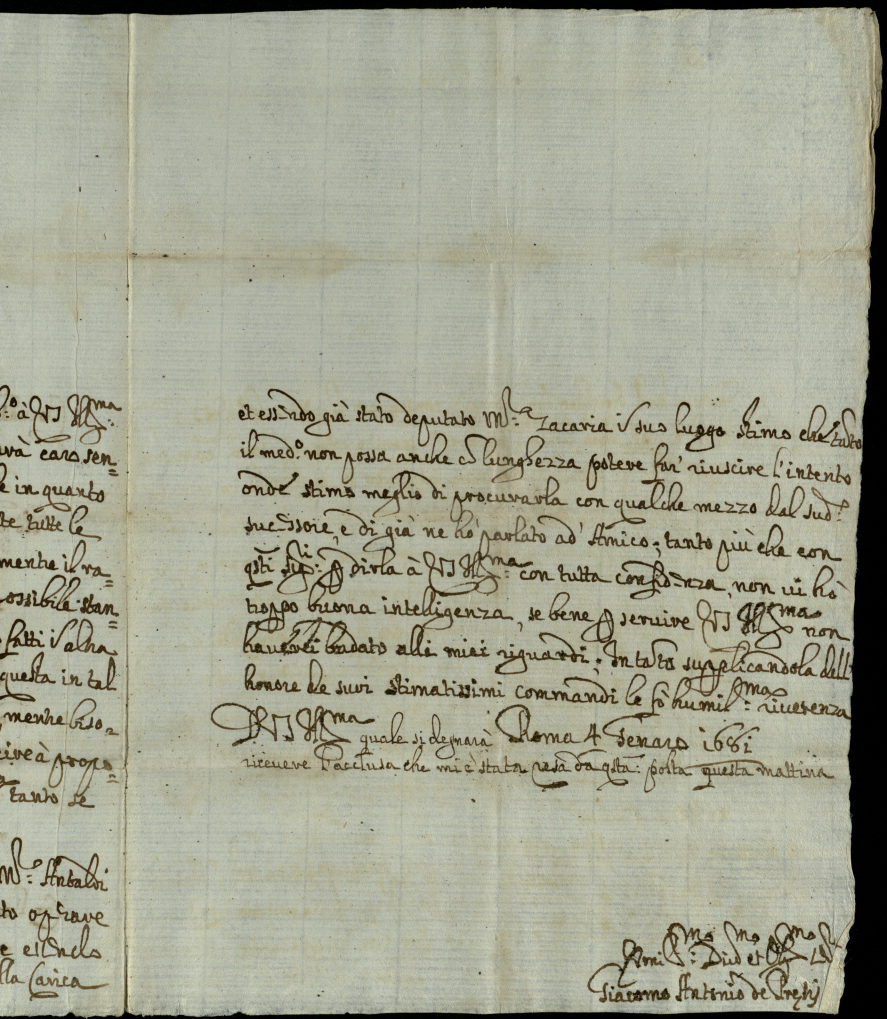 .º à VS Illma
arà caro sen=
e in quanto
te tutte le
mente il ra=
ossibile stan=
fatti
questa in tal
mentre biso=
cire à propo=
tanto se
Mr. Antaldi
to oprare
e essendo
lla Carica
et essendo già stato deputato Mr. Zacaria i suo luogo stimo che tanto
il medº. non possa anche cõ lunghezza potere far' riuscire l'intento
onde stimo meglio di procurarla con qualche mezzo dal sudº.
sucessore, e di già ne hò parlato ad' Amico; tanto più che con
qsti Sigri: p dirla à VS Illma. con tutta confidenza, non ui hò
troppo buona intelligenza, se bene p seruire VS Illma non
hauerei badato alli miei riguardi; Intanto supplicandola dell'
honore de suoi stimatissimi commandi le fò humilma: riuerenza
D VS Illma quale si degnarà Roma 4 Genaro 1681
riceuere l'acclusa che mi è stata resa da qsta: posta questa mattina
Diuo et
Giacomo Antonio de Pretis